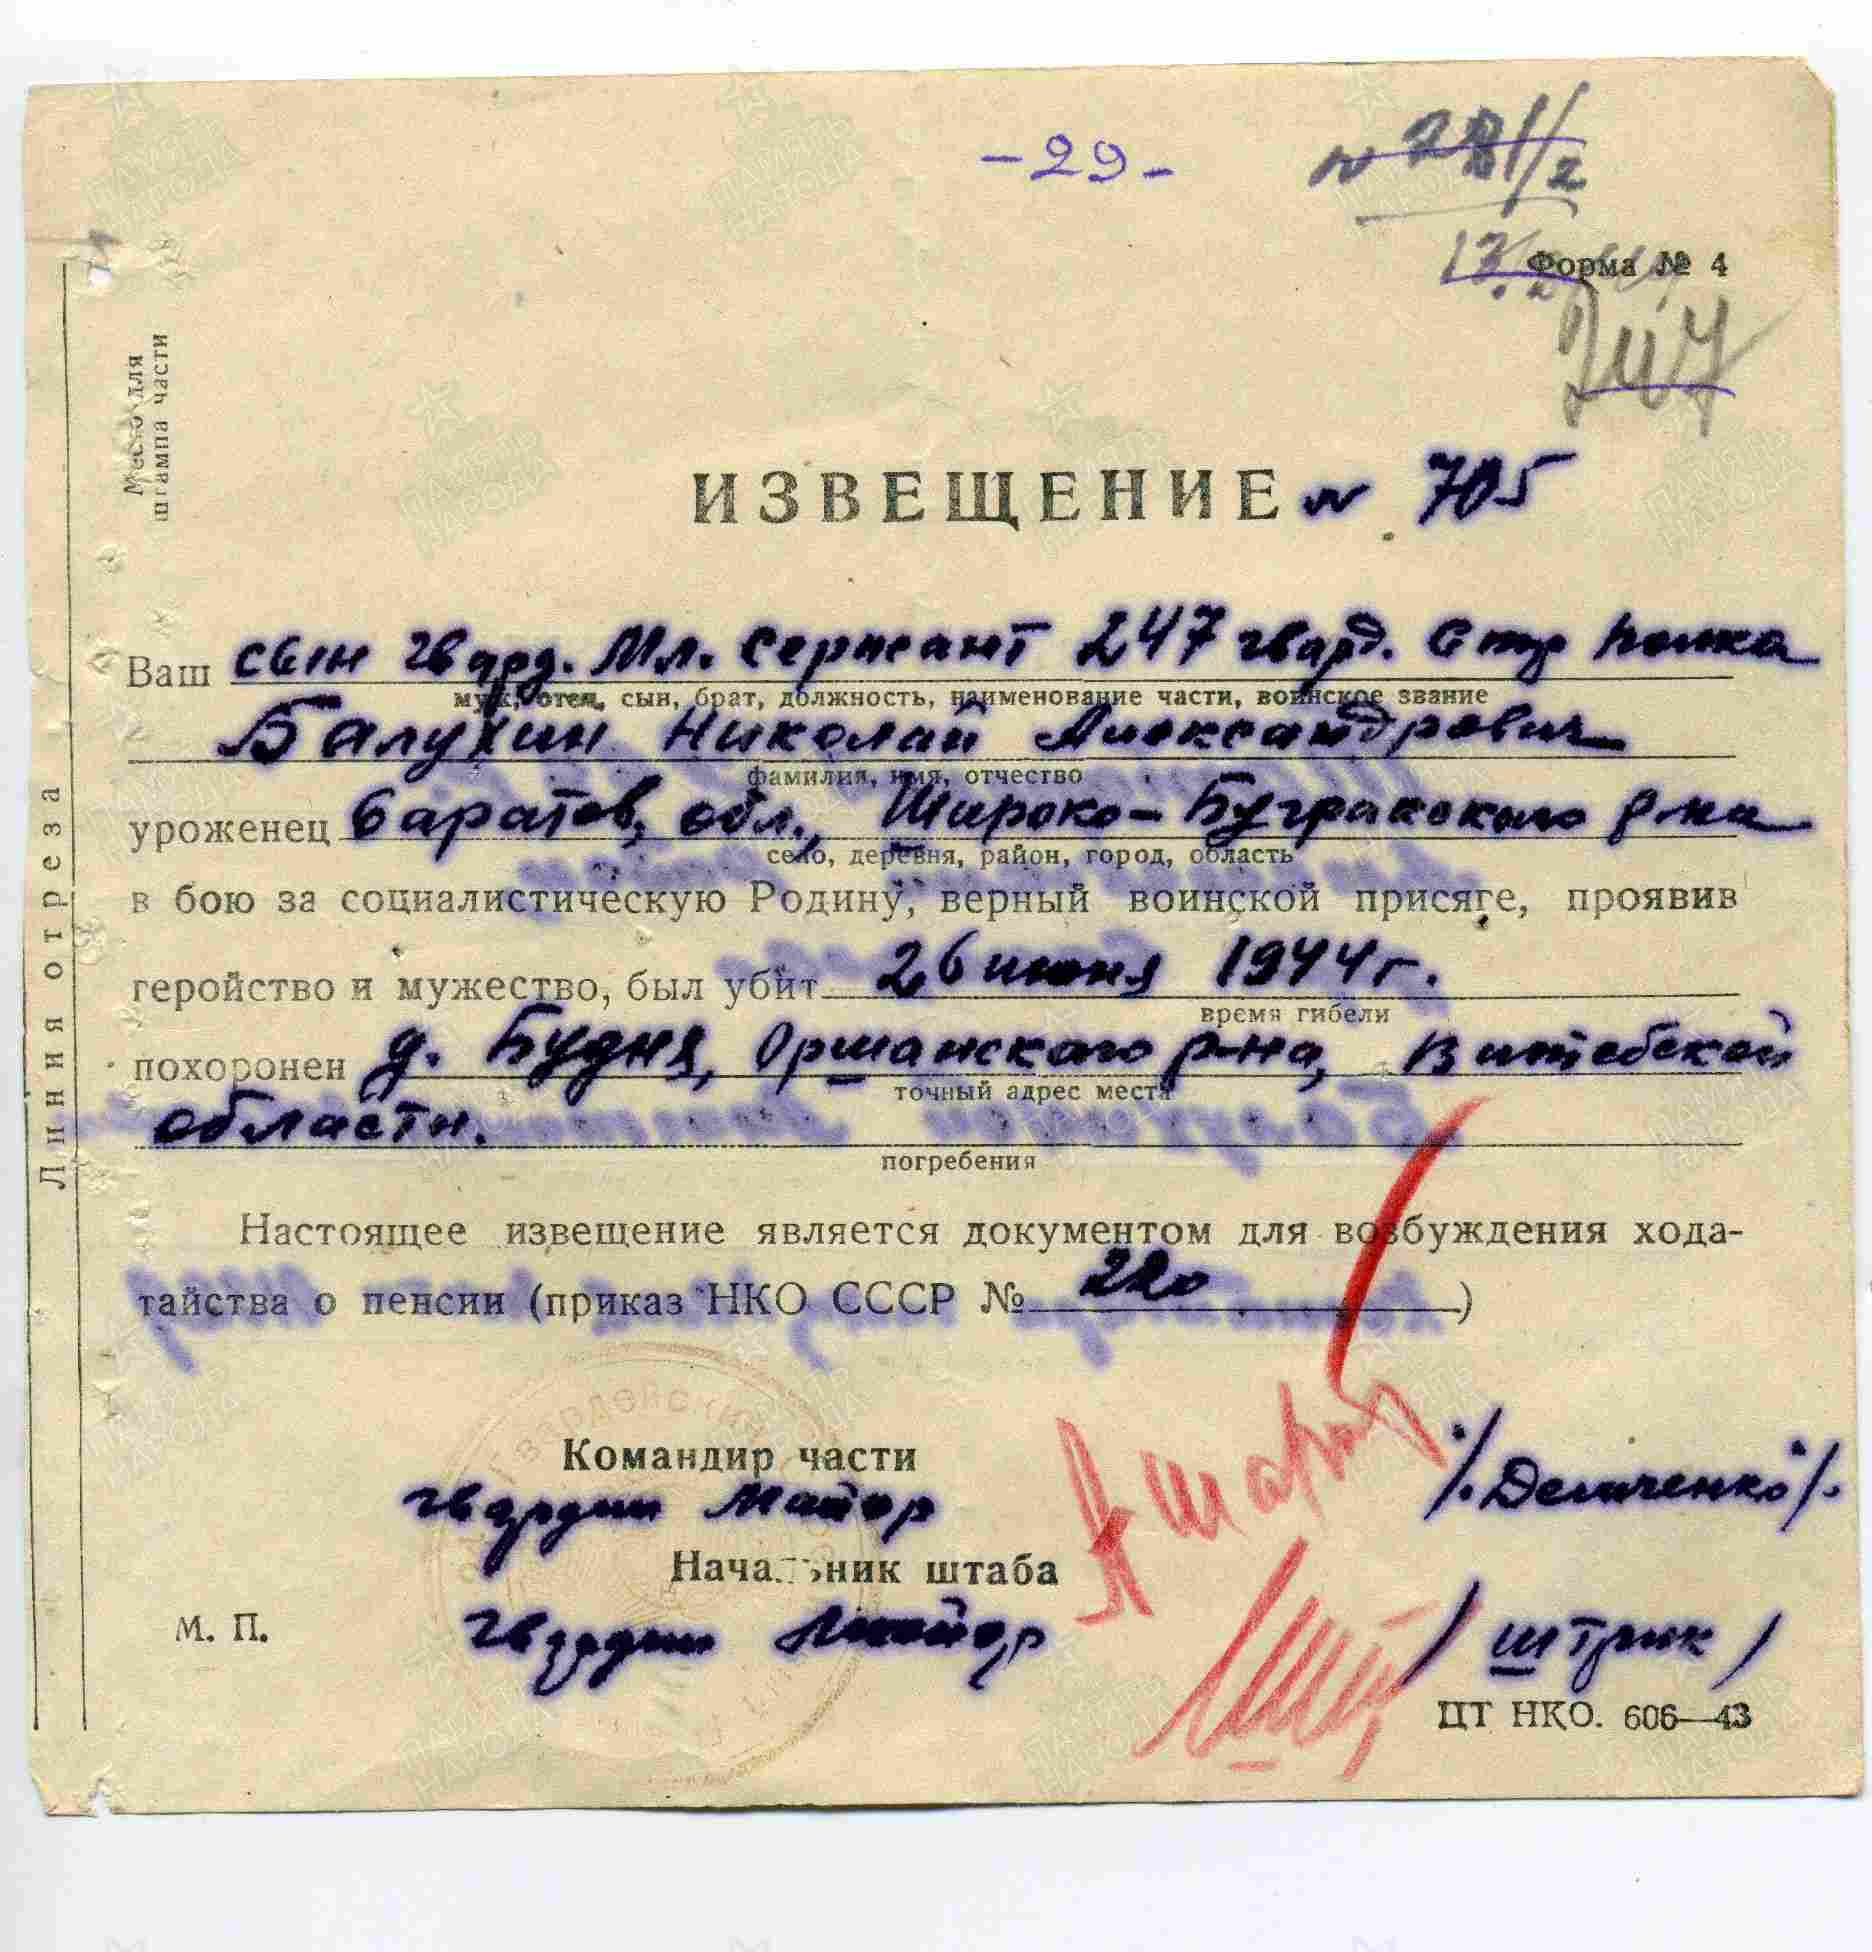 -29-
Форма № 4
Место для
штампа части
Линия отреза
ИЗВЕЩЕНИЕ № 705
Ваш сын гвард. Мл. Сержант 247 гвард. Стр полка
муж, отец, сын, брат, должность, наименование части, воинское звание
Балухин Николай Александрович
фамилия, имя, отчество
уроженец Саратов, обл., Широко-Буеракского р-на
село, деревня, район, город, область
в бою за социалистическую Родину, верный воинской присяге, проявив
геройство и мужество, был убит 26 июня 1944 г.
время гибели
похоронен д. Будня, Оршанского р-на, Витебской
точный адрес места
области.
погребения
Настоящее извещение является документом для возбуждения хода-
тайства о пенсии (приказ НКО СССР № 220)
Командир части
гвардии Майор /Демченко/
Начальник штаба
гвардии Майор /Штрик/
М. П.
ЦТ НКО. 606—43